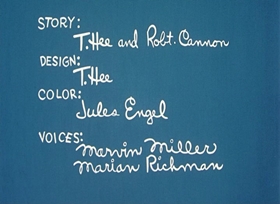 STORY:
T. Hee and Robt. Cannon
DESIGN:
T. Hee
COLOR:
Jules Engel
VOICES:
Marvin Miller
Marian Richman